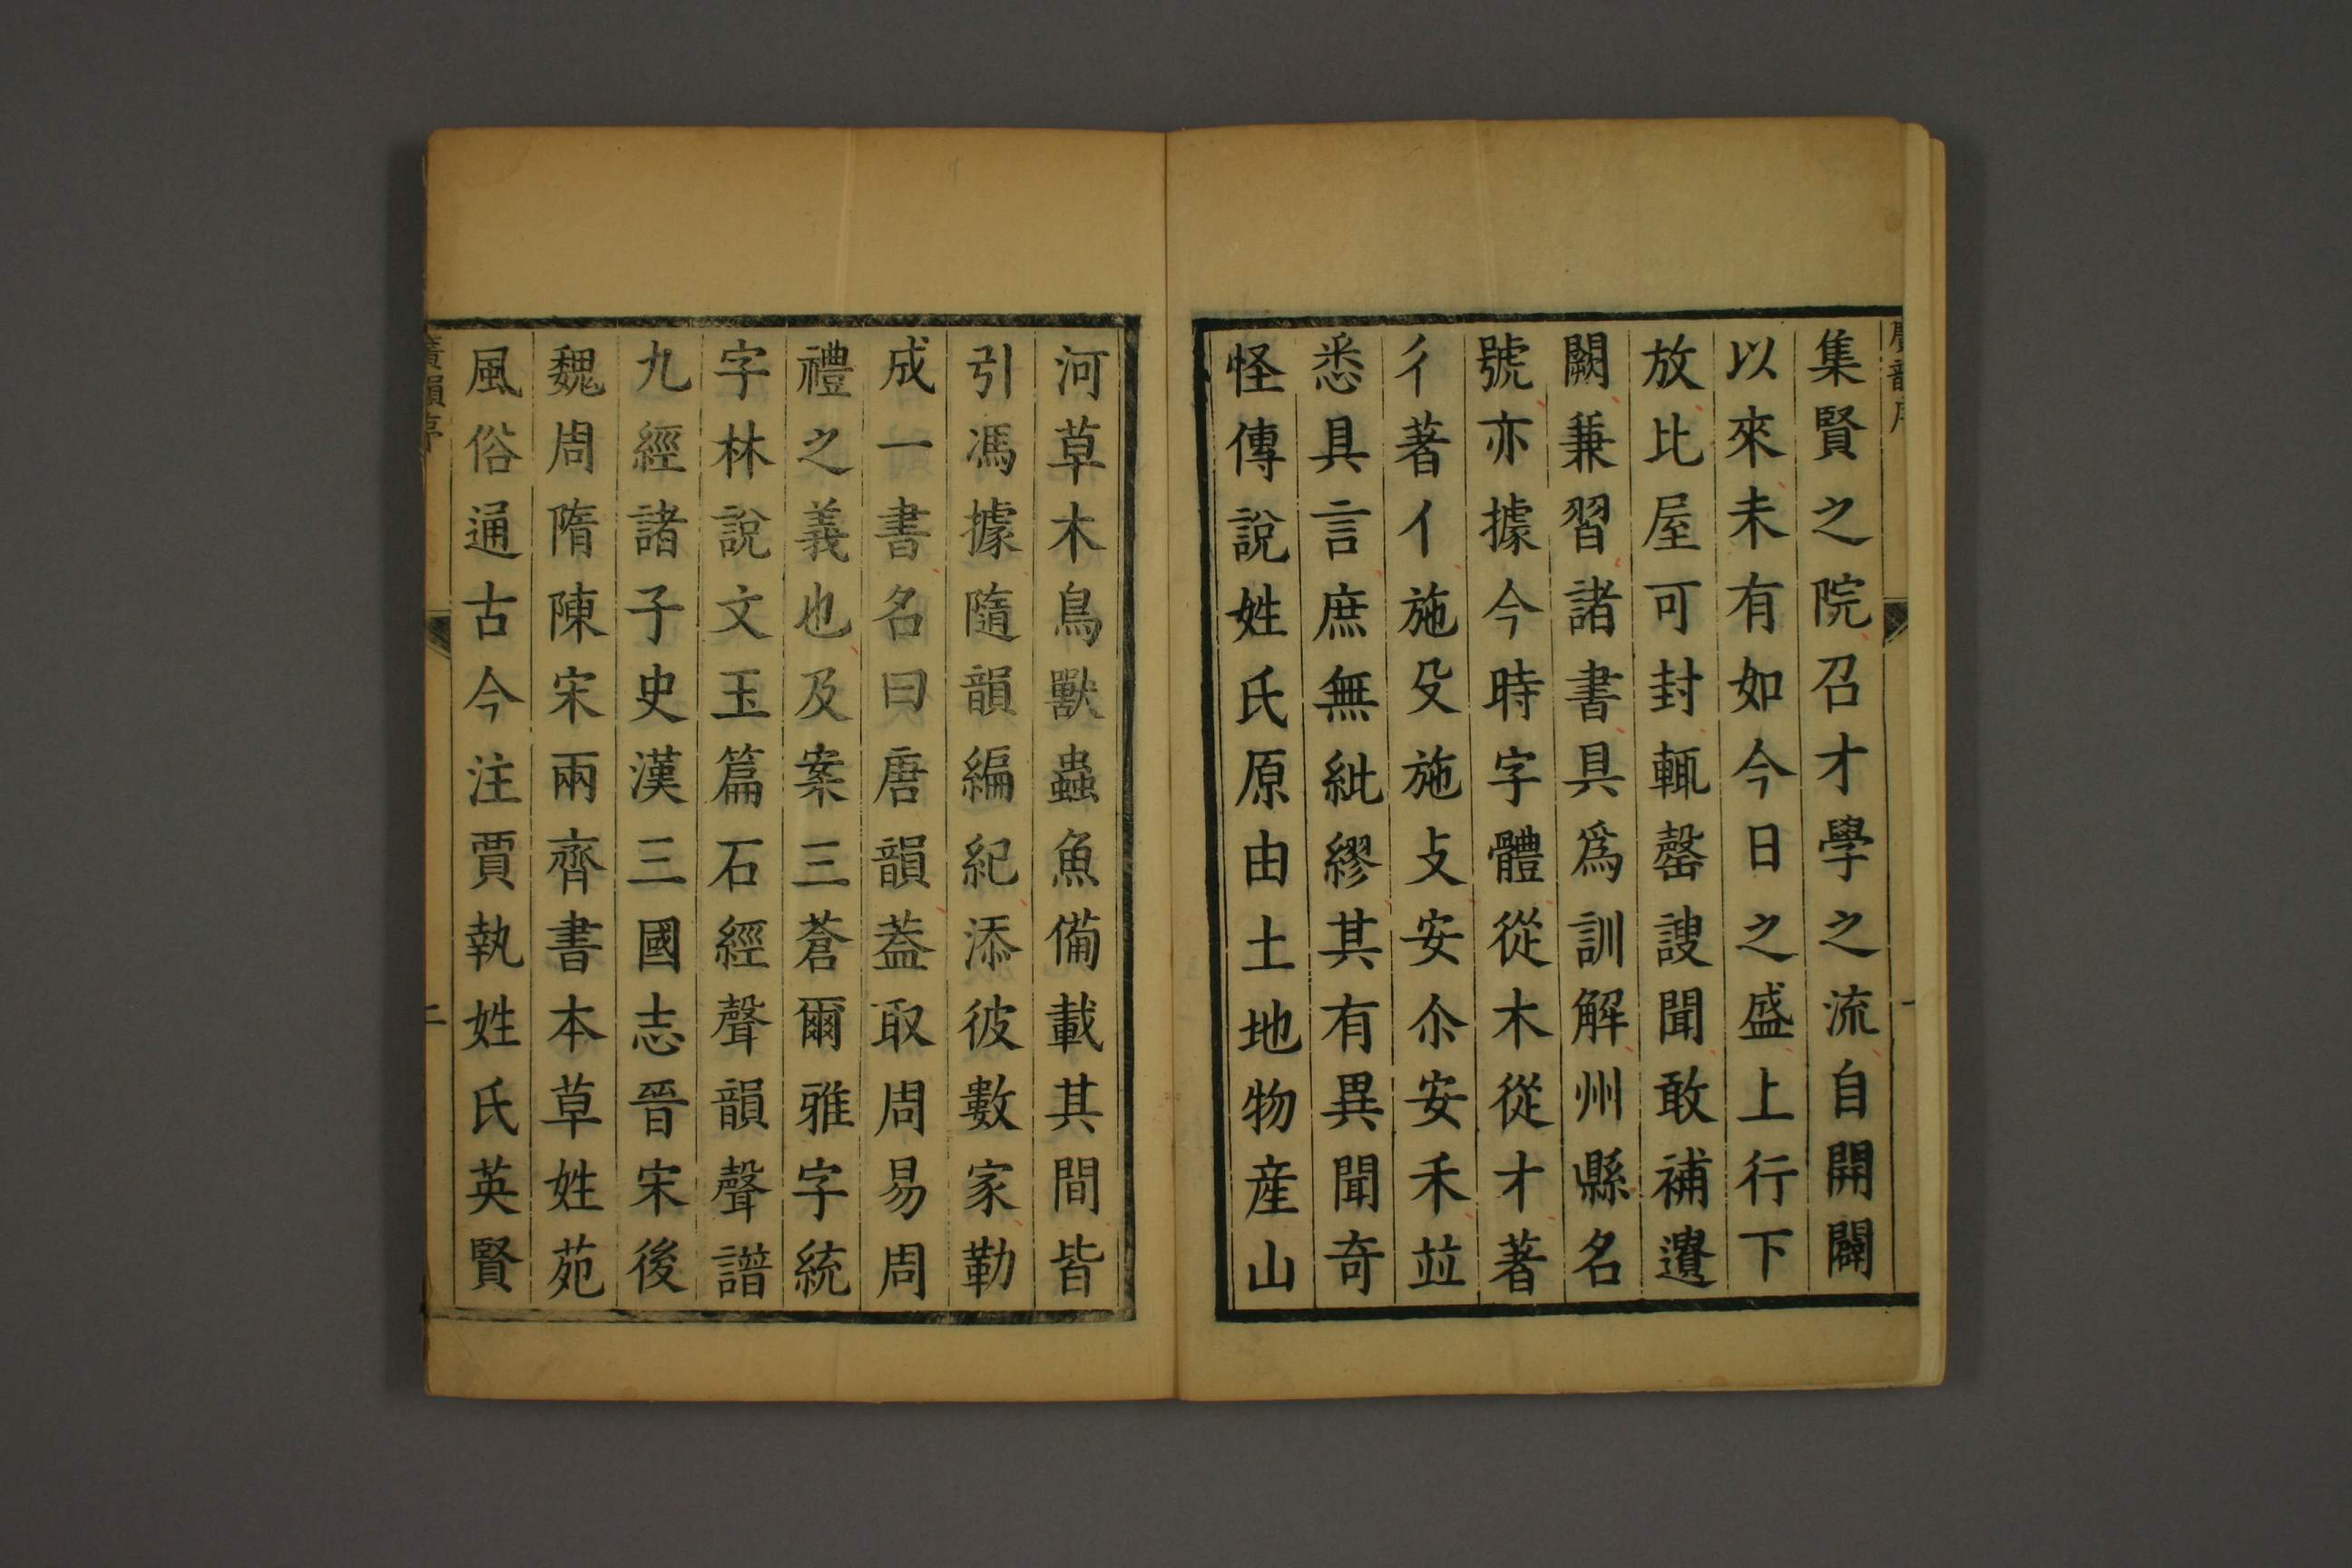 廣韻序
一
集賢之院召才學之流自開闢
以來未有如今日之盛上行下
放比屋可封輒罄謏聞敢補遺
闕兼習諸書具爲訓解州縣名
號亦據今時字體從木從才著
彳著亻施殳施攴安尒安禾並
悉具言庶無紕繆其有異聞奇
怪傳說姓氏原由土地物産山
河草木鳥獸蟲魚備載其間皆
引馮據隨韻編紀添彼數家勒
成一書名曰唐韻蓋取周易周
禮之義也及案三蒼爾雅字統
字林說文玉篇石經聲韻聲譜
九經諸子史漢三國志晉宋後
魏周隋陳宋兩齊書本草姓苑
風俗通古今注賈執姓氏英賢
廣韻序
二